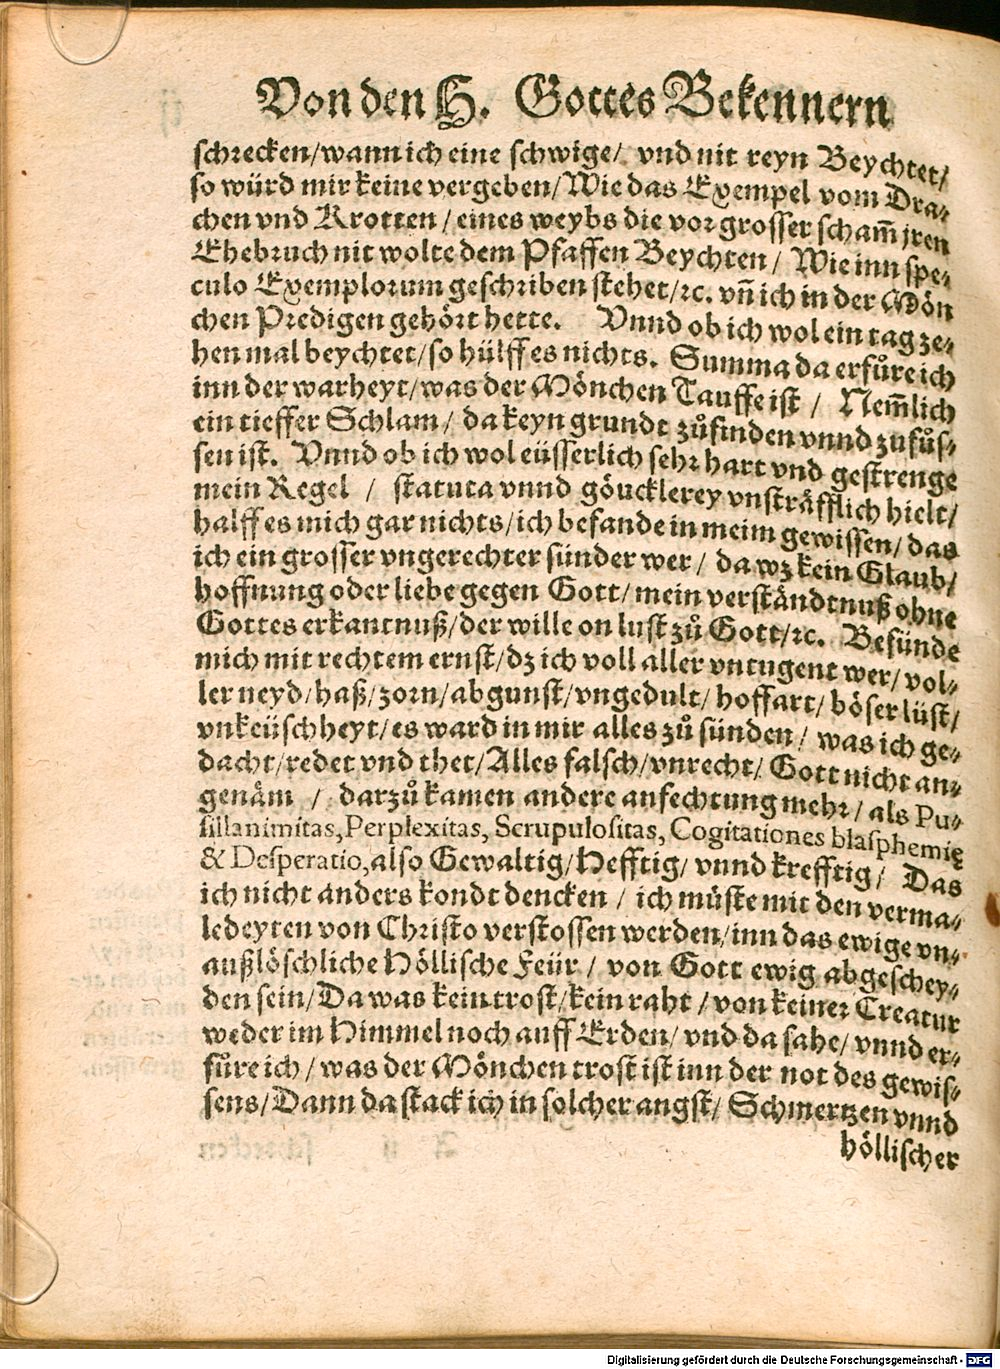 Von den H. Gottes Bekennern
schrecken/wann ich eine schwige/ vnd nit reyn Beychtet/
so würd mir keine vergeben/Wie das Exempel vom Dra⸗
chen vnd Krotten/eines weybs die vor grosser scham̃ jren
Ehebruch nit wolte dem Pfaffen Beychten/ Wie inn spe⸗
culo Exemplorum geschriben stehet/ꝛc. vñ ich in der Mön
chen Predigen gehört hette. Vnnd ob ich wol ein tag ze⸗
hen mal beychtet/so hülff es nichts. Summa da erfůre ich
inn der warheyt/was der Mönchen Tauffe ist / Nem̃lich
ein tieffer Schlam/ da keyn grundt zůfinden vnnd zufůs⸗
sen ist. Vnnd ob ich wol eüsserlich sehr hart vnd gestrenge
mein Regel / statuta vnnd göucklerey vnsträfflich hielt/
halff es mich gar nichts/ich befande in meim gewissen/das
ich ein grosser vngerechter sünder wer/ da wz kein Glaub/
hoffnung oder liebe gegen Gott/mein verständtnuß ohne
Gottes erkantnuß/der wille on lust zů Gott/ꝛc. Befünde
mich mit rechtem ernst/dz ich voll aller vntugent wer/vol⸗
ler neyd/haß/zorn/abgunst/vngedult/hoffart/böser lüst/
vnkeüschheyt/es ward in mir alles zů sünden/ was ich ge⸗
dacht/redet vnd thet/Alles falsch/vnrecht/ Gott nicht an⸗
genäm / darzů kamen andere anfechtung mehr/als Pu⸗
sillanimitas, Perplexitas, Scrupulositas, Cogitationes blasphemię
& Desperatio, also Gewaltig/Hefftig/ vnnd krefftig/ Das
ich nicht anders kondt dencken / ich müste mit den verma⸗
ledeyten von Christo verstossen werden/inn das ewige vn⸗
außlöschliche Höllische Feür / von Gott ewig abgeschey⸗
den sein/Da was kein trost/kein raht/von keiner Creatur
weder im Himmel noch auff Erden/ vnd da sahe/ vnnd er⸗
fůre ich/was der Mönchen trost ist inn der not des gewis⸗
sens/Dann da stack ich in solcher angst/ Schmertzen vnnd
höllischer
Digitalisierung gefördert durch die Deutsche Forschungsgemeinschaft - DFG